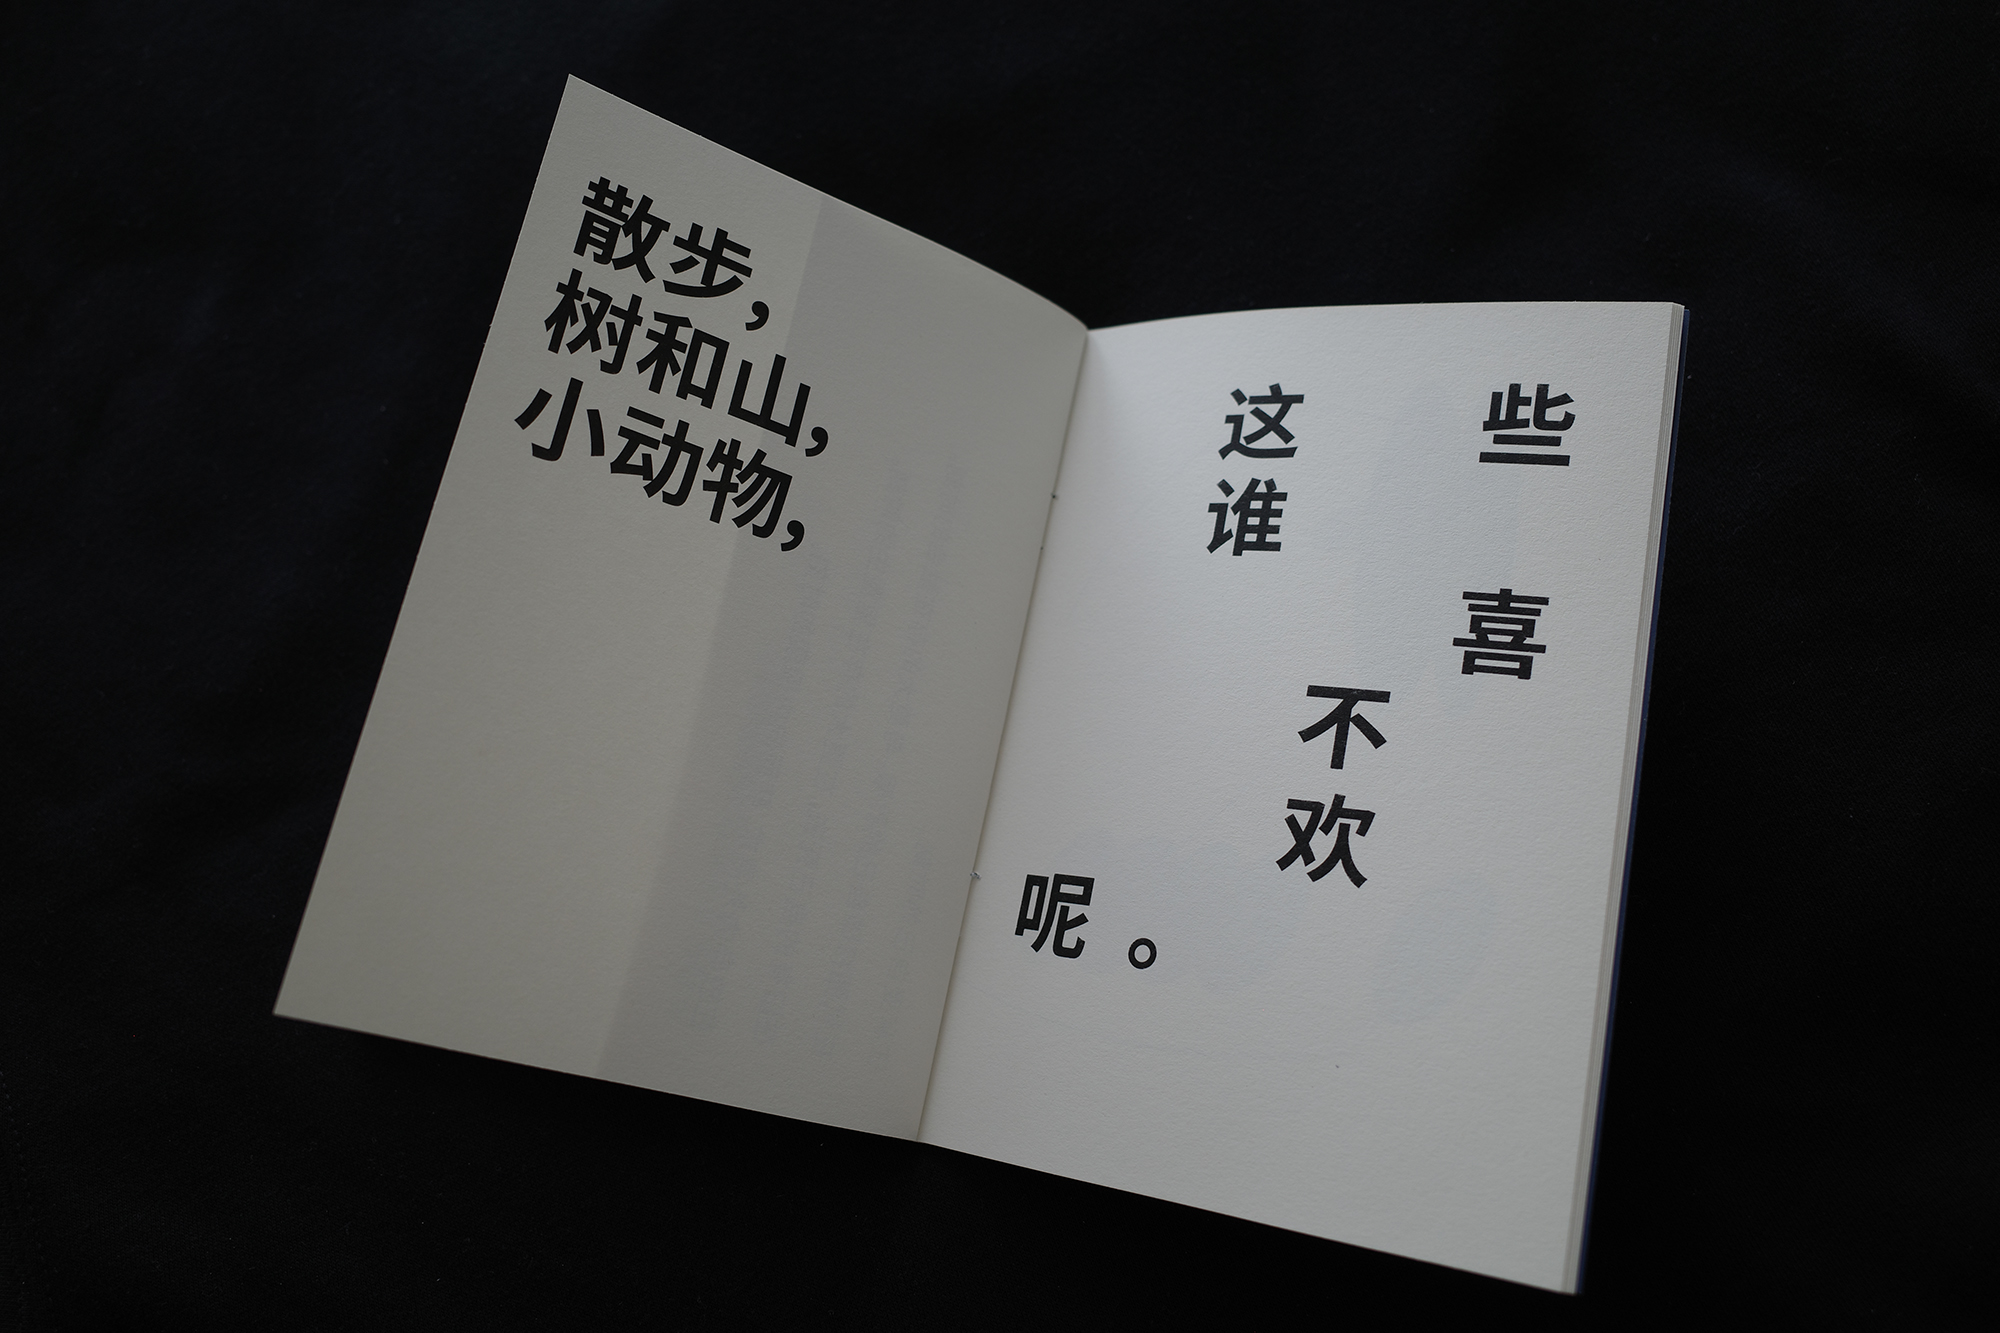 散步，
树和山，
小动物，
这 些
谁
喜
不
欢
呢。